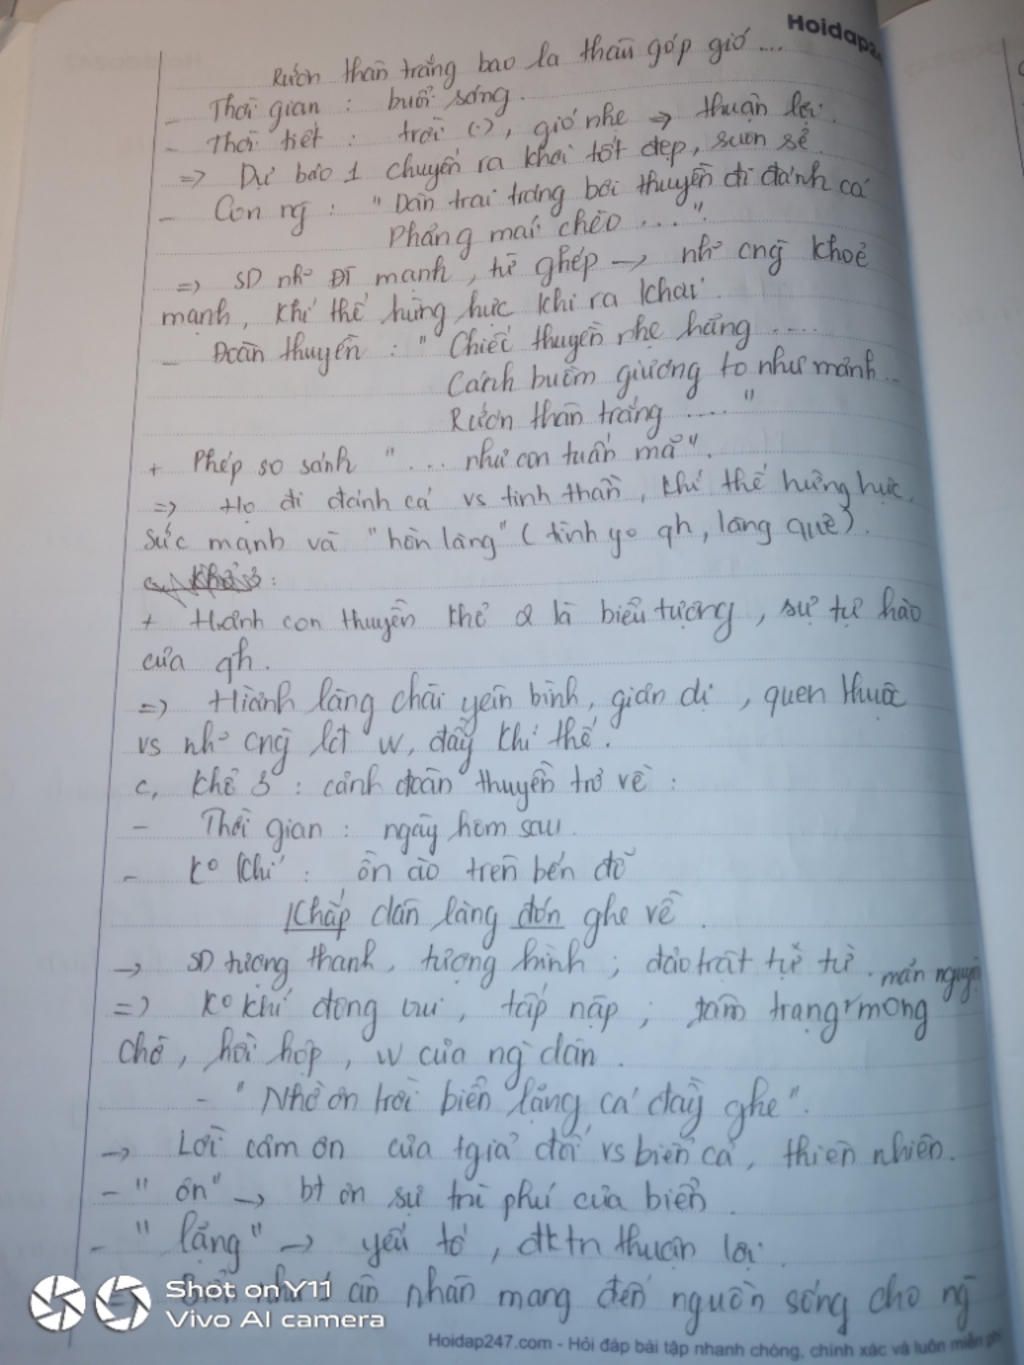 Hoidap2
Rướn thân trắng bao la thâu góp gió ...
- Thời gian : buổi sáng.
- Thời tiết : trời (.), gió nhẹ => thuận lợi.
=> Dự báo 1 chuyến ra khơi tốt đẹp, suôn sẻ.
- Con ng : " Dân trai tráng bơi thuyền đi đánh cá
Phăng mái chèo ....".
=> SD nh° ĐT mạnh, từ ghép -> nh° cng khoẻ
mạnh, khí thế hừng hực khi ra khơi.
- Đoàn thuyền : " Chiếc thuyền nhẹ hăng ....
Cánh buồm giương to như mảnh ..
Rướn thân trắng .... "
+ Phép so sánh " ... như con tuấn mã".
=> Họ đi đánh cá vs tinh thần, khí thế hừng hực,
sức mạnh và "hồn làng" ( tình yo qh, làng quê).
+ H.ảnh con thuyền khổ 2 là biểu tượng, sự tự hào
của qh.
=> H.ảnh làng chài yên bình, giản dị, quen thuộc
vs nh° cng lđ w, đầy khí thế.
c, Khổ 3 : cảnh đoàn thuyền trở về :
- Thời gian : ngày hôm sau.
- K° khí : ồn ào trên bến đỗ
Khắp dân làng đón ghe về .
-> SD tượng thanh, tượng hình ; đảo trật tự từ.
mãn nguyện
=> K° khí đông vui, tấp nập ; tâm trạng mong
chờ, hồi hộp, w của ng dân .
- " Nhờ ơn trời biển lặng cá đầy ghe".
-> Lời cảm ơn của tgiả đối vs biển cả, thiên nhiên.
- " ơn" -> bt ơn sự trù phú của biển .
- " lặng" -> yếu tố , đktn thuận lợi.
ân nhân mang đến nguồn sống cho ng
Shot on Y11
Vivo AI camera
Hoidap247.com - Hỏi đáp bài tập nhanh chóng, chính xác và luôn miễn phí